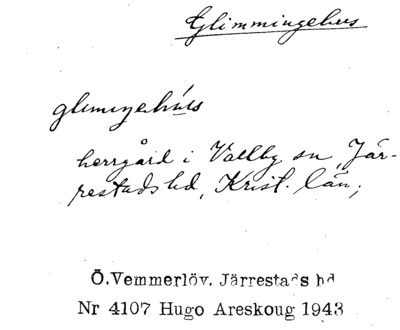 Glimmingehus
glimiŋehús
herrgård i Vallby sn, Jär-
restads hd, Krist. län;
Ö. Vemmerlöv. Järrestads hd
Nr 4107 Hugo Areskoug 1943